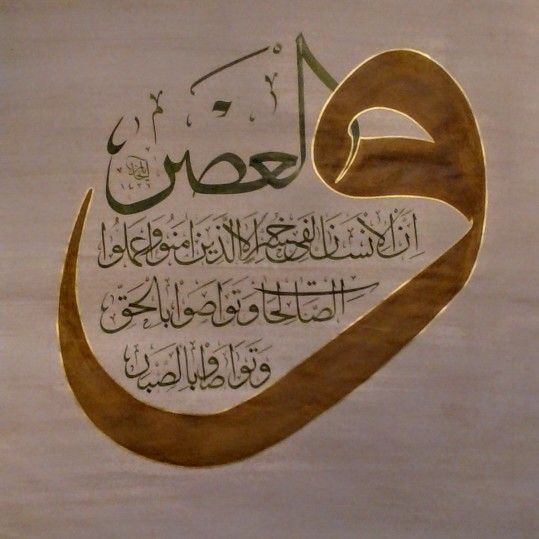 والعصر
إن الإنسان لفي خسر إلا الذين آمنوا وعملوا
الصالحات وتواصوا بالحق
وتواصوا بالصبر
١٤٢٦